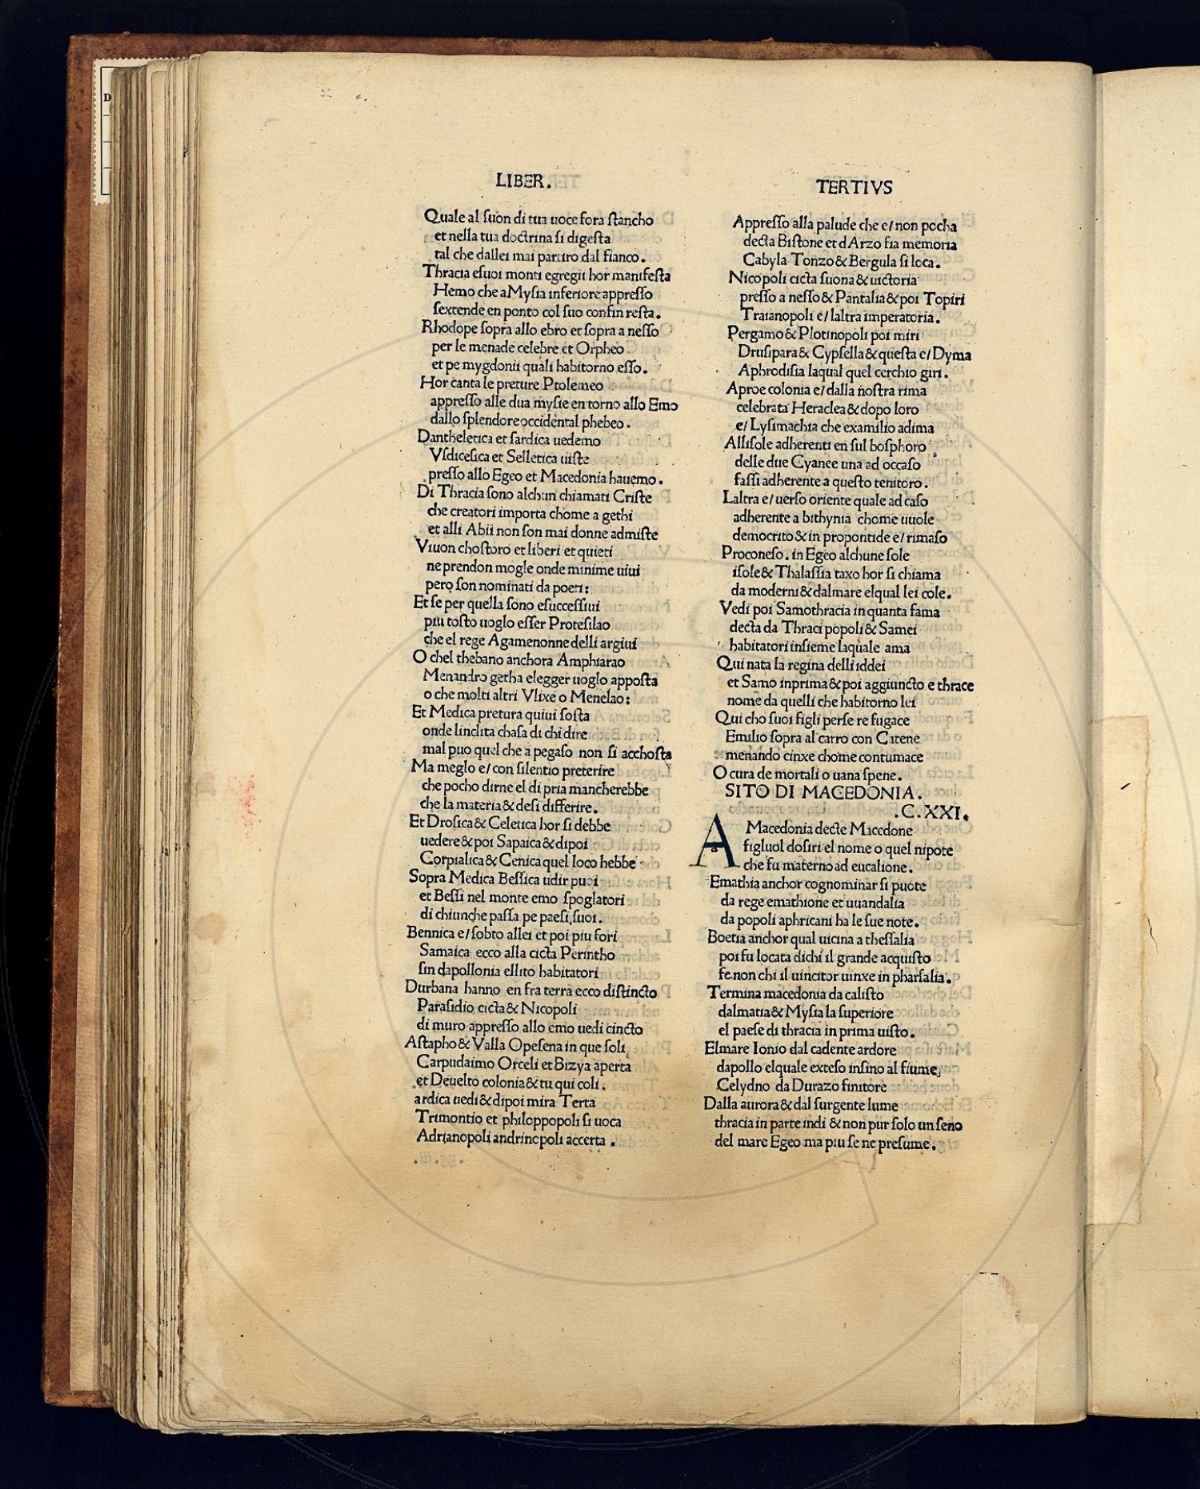 LIBER.
Quale al ſuon di tua uoce fora ſtancho
et nella tua doctrina ſi digeſta
tal che dallei mai partiro dal fianco.
Thracia eſuoi monti egregii hor manifeſta
Hemo che aMyſia inferiore appreſſo
ſextende en ponto col ſuo confin reſta.
Rhodope ſopra allo ebro et ſopra a neſſo
per le menade celebre et Orpheo
et pe mygdonii quali habitorno eſſo.
Hor canta le preture Ptolemeo
appreſſo alle dua myſie en torno allo Emo
dallo ſplendore occidental phebeo.
Dantheletica et ſardica uedemo
Vſdiceſica et Selletica uiſte
preſſo allo Egeo et Macedonia hauemo.
Di Thracia ſono alchun chiamati Criſte
che creatori importa chome a gethi
et alli Abii non ſon mai donne admiſte
Viuon choſtoro et liberi et quieti
ne prendon mogle onde minime uiui
pero ſon nominati da poeti:
Et ſe per quella ſono eſucceſſiui
piu toſto uoglo eſſer Proteſilao
che el rege Agamenonne delli argiui
O chel thebano anchora Amphiarao
Menandro getha elegger uoglo appoſta
o che molti altri Vlixe o Menelao:
Et Medica pretura quiui ſoſta
onde linclita chaſa di chi dire
mal puo quel che a pegaſo non ſi acchoſta
Ma meglo e/ con ſilentio preterire
che pocho dirne el di pria mancherebbe
che la materia & deſi differire.
Et Droſica & Celetica hor ſi debbe
uedere & poi Sapaica & dipoi
Corpialica & Cenica quel loco hebbe
Sopra Medica Beſſica udir puoi
et Beſſi nel monte emo ſpoglatori
di chiunche paſſa pe paeſi ſuoi.
Bennica e/ ſobto allei et poi piu fori
Samaica ecco alla cicta Perintho
fin dapollonia ellito habitatori
Durbana hanno en fra terra ecco diſtincto
Paraſidio cicta & Nicopoli
di muro appreſſo allo emo uedi cincto
Aſtapho & Valla Opeſena in que ſoli
Carpudaimo Orceli et Bizya aperta
et Deuelto colonia & tu qui coli.
ardica uedi & dipoi mira Terta
Trimontio et philoppopoli ſi uoca
Adrianopoli andrinepoli accerta.
TERTIVS
Appreſſo alla palude che e/ non pocha
decta Biſtone et d Arzo fia memoria
Cabyla Tonzo & Bergula ſi loca.
Nicopoli cicta ſuona & uictoria
preſſo a neſſo & Pantaſia & poi Topiri
Traianopoli e/ laltra imperatoria.
Pergamo & Plotinopoli poi miri
Druſipara & Cypſella & queſta e/ Dyma
Aphrodiſia laqual quel cerchio giri.
Aproe colonia e/ dalla noſtra rima
celebrata Heraclea & dopo loro
e/ Lyſimachia che examilio adima
Alliſole adherenti en ſul boſphoro
delle due Cyanee una ad occaſo
faſſi adherente a queſto tenitoro.
Laltra e/ uerſo oriente quale ad caſo
adherente a bithynia chome uuole
democrito & in propontide e/ rimaſo
Proconeſo. in Egeo alchune ſole
iſole & Thalaſſia taxo hor ſi chiama
da moderni & dalmare elqual lei cole.
Vedi poi Samothracia in quanta fama
decta da Thraci popoli & Samei
habitatori inſieme laquale ama
Qui nata la regina delli iddei
et Samo inprima & poi aggiuncto e thrace
nome da quelli che habitorno lei
Qui cho ſuoi figli perſe re fugace
Emilio ſopra al carro con Catene
menando cinxe chome contumace
O cura de mortali o uana ſpene.
SITO DI MACEDONIA.
.C.XXI.
A Macedonia decte Macedone
figluol doſiri el nome o quel nipote
che fu materno ad eucalione.
Emathia anchor cognominar ſi puote
da rege emathione et uuandalia
da popoli aphricani ha le ſue note.
Boetia anchor qual uicina a theſſalia
poi fu locata dichi il grande acquiſto
fe non chi il uincitor uinxe in pharſalia.
Termina macedonia da caliſto
dalmatia & Myſia la ſuperiore
el paeſe di thracia in prima uiſto.
Elmare Ionio dal cadente ardore
dapollo elquale exteſo inſino al fiume
Celydno da Durazo finitore
Dalla aurora & dal ſurgente lume
thracia in parte indi & non pur ſolo un ſeno
del mare Egeo ma piu ſe ne preſume.